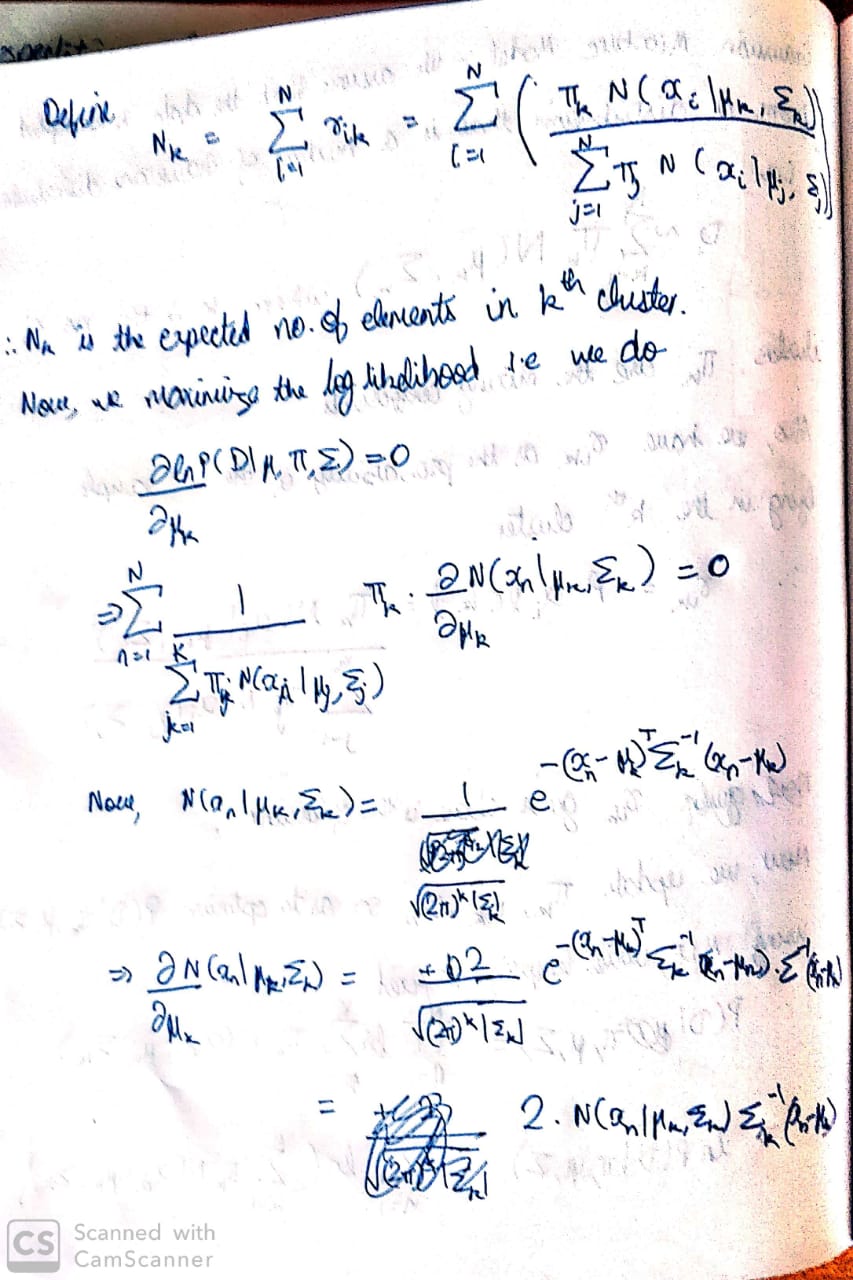 Define N_k = \sum_{i=1}^{N} r_{ik} = \sum_{i=1}^{N} ( \frac{\pi_k N(x_i | \mu_k, \Sigma_k)}{\sum_{j=1}^{N} \pi_j N(x_i | \mu_j, \Sigma_j)} )
∴ N_k is the expected no. of elements in k^{th} cluster.
Now, we maximize the log likelihood i.e we do
\frac{∂ ln P(D | \mu, \pi, \Sigma)}{∂\mu_k} = 0
⇒ \sum_{n=1}^{N} \frac{1}{\sum_{j=1}^{K} \pi_j N(x_n | \mu_j, \Sigma_j)} \pi_k . \frac{∂N(x_n | \mu_k, \Sigma_k)}{∂\mu_k} = 0
Now, N(x_n | \mu_k, \Sigma_k) = \frac{1}{\sqrt{(2\pi)^k |\Sigma_k|}} e^{-(x_n - \mu_k)^T \Sigma_k^{-1} (x_n - \mu_k)}
⇒ \frac{∂N(x_n | \mu_k, \Sigma_k)}{∂\mu_k} = \frac{+ 2}{\sqrt{(2\pi)^k |\Sigma_k|}} e^{-(x_n - \mu_k)^T \Sigma_k^{-1} (x_n - \mu_k)} . \Sigma^{-1} (x_n - \mu_k)
= 2 . N(x_n | \mu_k, \Sigma_k) \Sigma_k^{-1} (x_n - \mu_k)
CS Scanned with
CamScanner